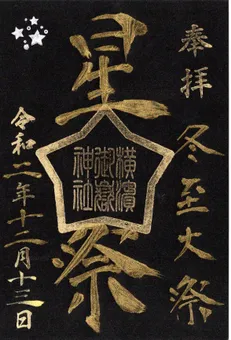 奉拝
冬至大祭
星祭
横濱
御嶽
神社
令和二年十二月十三日